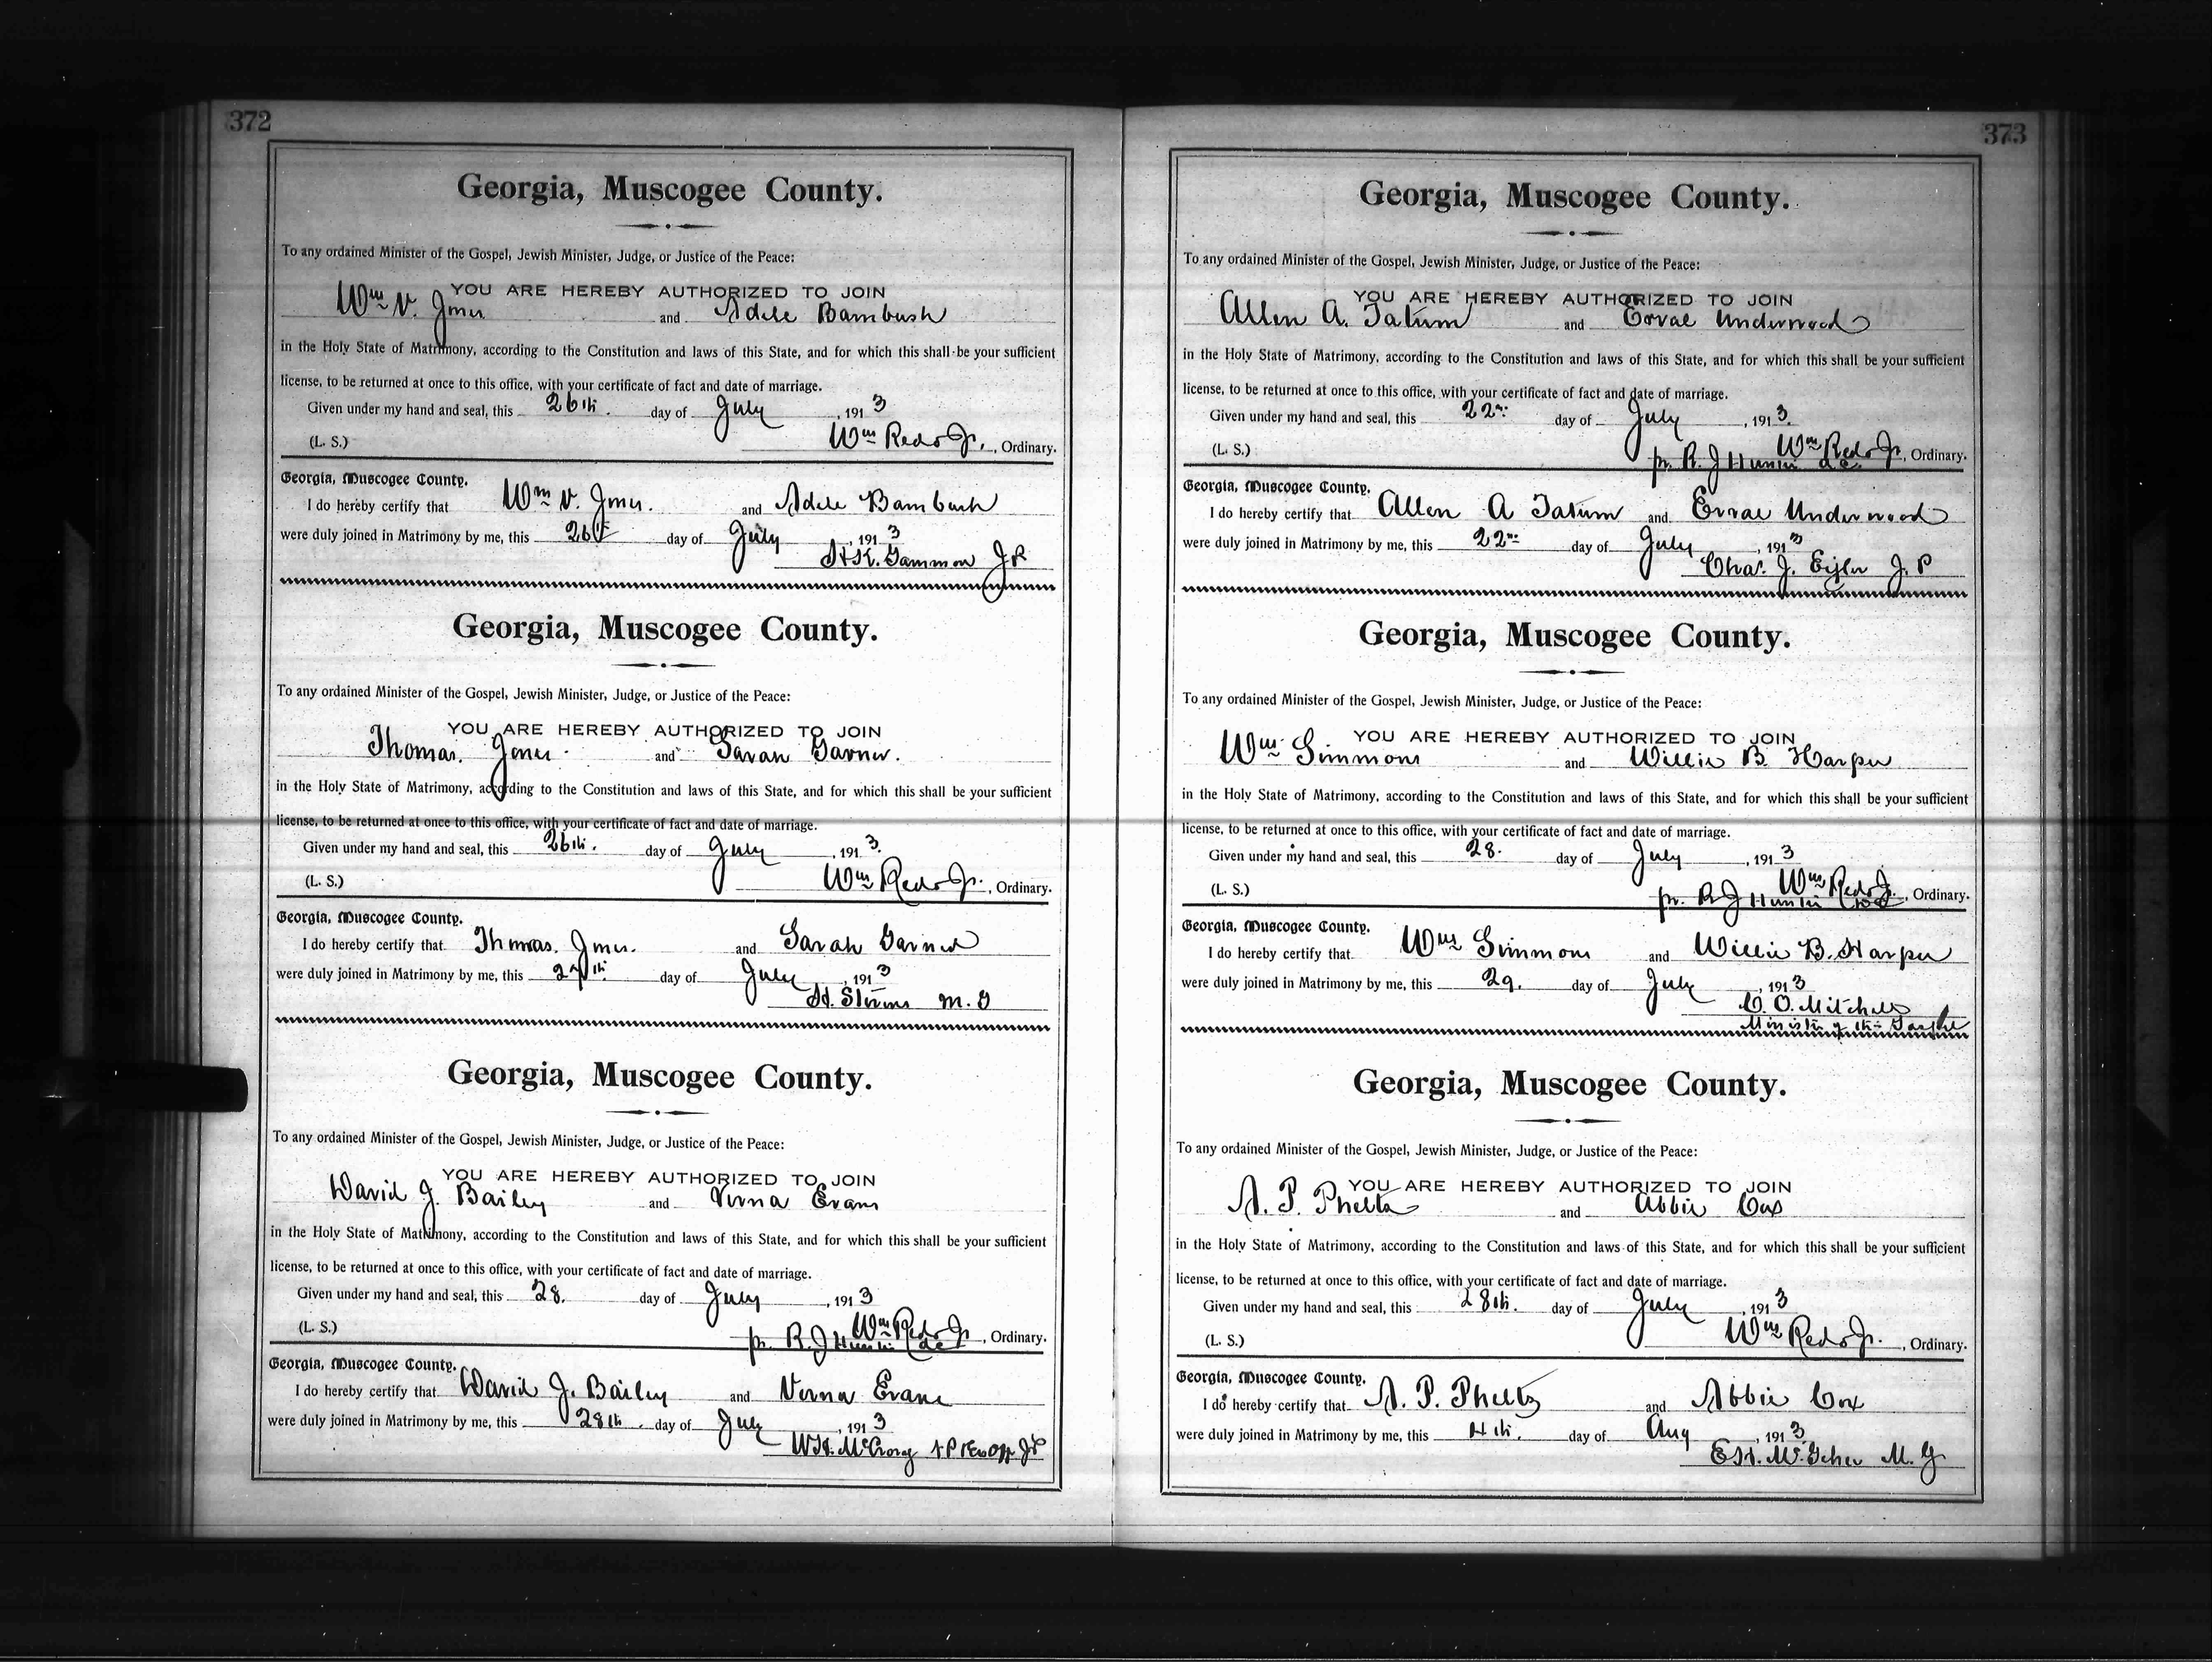 372
Georgia, Muscogee County.
To any ordained Minister of the Gospel, Jewish Minister, Judge, or Justice of the Peace:
YOU ARE HEREBY AUTHORIZED TO JOIN
Wm V. Jones and Adele Bambush
in the Holy State of Matrimony, according to the Constitution and laws of this State, and for which this shall be your sufficient
license, to be returned at once to this office, with your certificate of fact and date of marriage.
Given under my hand and seal, this 26th. day of July, 1913
(L. S.) Wm Redd Jr., Ordinary.
Georgia, Muscogee County.
I do hereby certify that Wm V. Jones. and Adele Bambush
were duly joined in Matrimony by me, this 26th day of July, 1913
Gammon J P
Georgia, Muscogee County.
To any ordained Minister of the Gospel, Jewish Minister, Judge, or Justice of the Peace:
YOU ARE HEREBY AUTHORIZED TO JOIN
Thomas. Jones. and Sarah Garner.
in the Holy State of Matrimony, according to the Constitution and laws of this State, and for which this shall be your sufficient
license, to be returned at once to this office, with your certificate of fact and date of marriage.
Given under my hand and seal, this 26th. day of July, 1913.
(L. S.) Wm Redd Jr., Ordinary.
Georgia, Muscogee County.
I do hereby certify that Thomas. Jones. and Sarah Garner
were duly joined in Matrimony by me, this 27th day of July, 1913
H. Stevens M. G
Georgia, Muscogee County.
To any ordained Minister of the Gospel, Jewish Minister, Judge, or Justice of the Peace:
YOU ARE HEREBY AUTHORIZED TO JOIN
David J. Bailey and Verna Evans
in the Holy State of Matrimony, according to the Constitution and laws of this State, and for which this shall be your sufficient
license, to be returned at once to this office, with your certificate of fact and date of marriage.
Given under my hand and seal, this 28. day of July, 1913
(L. S.) Wm Redd Jr, Ordinary.
pr. R. J Hunter
Georgia, Muscogee County.
I do hereby certify that David J. Bailey and Verna Evans
were duly joined in Matrimony by me, this 28th. day of July, 1913
W.H. McCrory
373
Georgia, Muscogee County.
To any ordained Minister of the Gospel, Jewish Minister, Judge, or Justice of the Peace:
YOU ARE HEREBY AUTHORIZED TO JOIN
Allen A. Tatum and Corrae Underwood
in the Holy State of Matrimony, according to the Constitution and laws of this State, and for which this shall be your sufficient
license, to be returned at once to this office, with your certificate of fact and date of marriage.
Given under my hand and seal, this 22nd day of July, 1913.
(L. S.) Wm Redd Jr, Ordinary.
pr. R. J Hunter
Georgia, Muscogee County.
I do hereby certify that Allen A Tatum and Errae Underwood
were duly joined in Matrimony by me, this 22nd day of July, 1913
Chas. J. J. P
Georgia, Muscogee County.
To any ordained Minister of the Gospel, Jewish Minister, Judge, or Justice of the Peace:
YOU ARE HEREBY AUTHORIZED TO JOIN
Wm Simmons and Willie B. Harper
in the Holy State of Matrimony, according to the Constitution and laws of this State, and for which this shall be your sufficient
license, to be returned at once to this office, with your certificate of fact and date of marriage.
Given under my hand and seal, this 28. day of July, 1913
(L. S.) Wm Redd Jr., Ordinary.
pr. R J Hunter
Georgia, Muscogee County.
I do hereby certify that Wm Simmons and Willie B. Harper
were duly joined in Matrimony by me, this 29. day of July, 1913
O. Mitchell
Minister of the Gospel
Georgia, Muscogee County.
To any ordained Minister of the Gospel, Jewish Minister, Judge, or Justice of the Peace:
YOU ARE HEREBY AUTHORIZED TO JOIN
A. P. Pheltz and Abbie Cox
in the Holy State of Matrimony, according to the Constitution and laws of this State, and for which this shall be your sufficient
license, to be returned at once to this office, with your certificate of fact and date of marriage.
Given under my hand and seal, this 28th. day of July, 1913
(L. S.) Wm Redd Jr., Ordinary.
Georgia, Muscogee County.
I do hereby certify that A. P. Pheltz and Abbie Cox
were duly joined in Matrimony by me, this 4th. day of Aug, 1913.
M. G